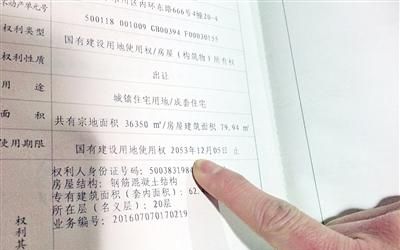 不动产单元号
川区内环东路666号4幢20-4
500118 001009 GB00394 F00030155
权利类型
国有建设用地使用权/房屋（构筑物）所有权
权利性质
出让
用 途
城镇住宅用地/成套住宅
面 积
共有宗地面积 36350 ㎡/房屋建筑面积 79.94 ㎡
使用期限
国有建设用地使用权 2053年12月05日 止
权利人身份证号码：500383198
房屋结构：钢筋混凝土结构
专有建筑面积（套内面积）：62.
所在层（名义层）：20层
业务编号：201607070170219
权
利
其